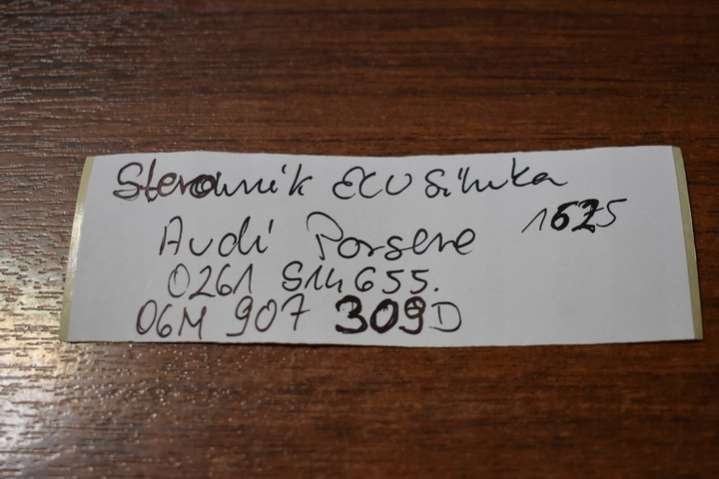 Sterownik ECU Silnika
Audi Porsche 1625
0261 S14 655.
06M 907 309D